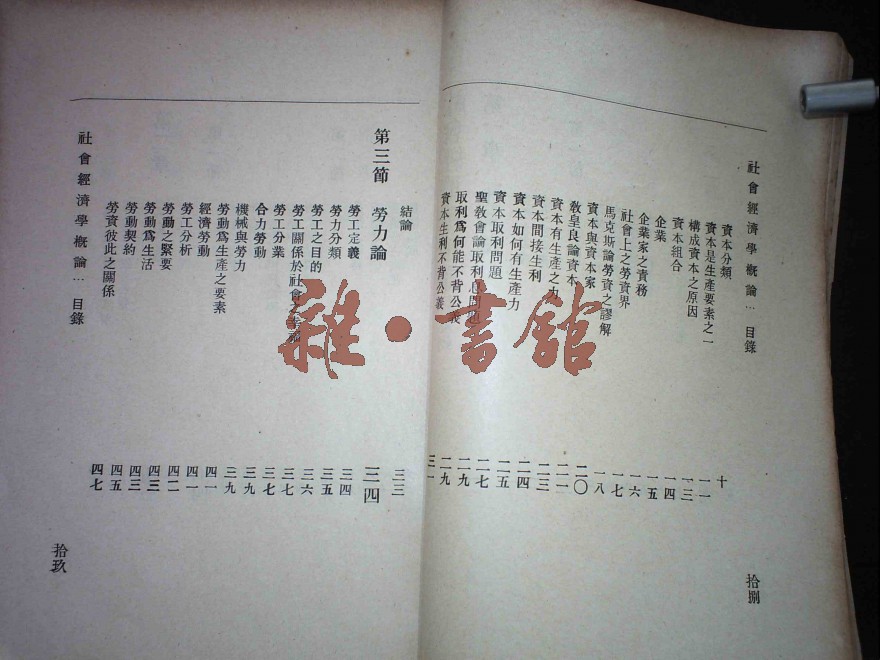 社會經濟學概論… 目錄
資本分類 十
資本是生產要素之一 一一
構成資本之原因 一三
資本組合 一四
企業 一五
企業家之責務 一六
社會上之勞資界 一七
馬克斯論勞資之謬解 一八
資本與資本家 二〇
教皇良論資本 二一
資本有生產之力 二三
資本間接生利 二四
資本如何有生產力 二五
資本取利問題 二七
聖教會論取利息問題 二九
取利爲何能不背公義 二九
資本生利不背公義 三一
拾捌
結論 三三
第三節 勞力論 三四
勞工定義 三四
勞力分類 三五
勞工之目的 三六
勞工關係於社會之幸福 三七
勞工分業 三七
合力勞動 三九
機械與勞力 三九
勞動爲生產之要素 四一
經濟勞動 四一
勞工分析 四二
勞動之緊要 四三
勞動爲生活 四三
勞動契約 四五
勞資彼此之關係 四七
社會經濟學概論… 目錄
拾玖
雜·書館